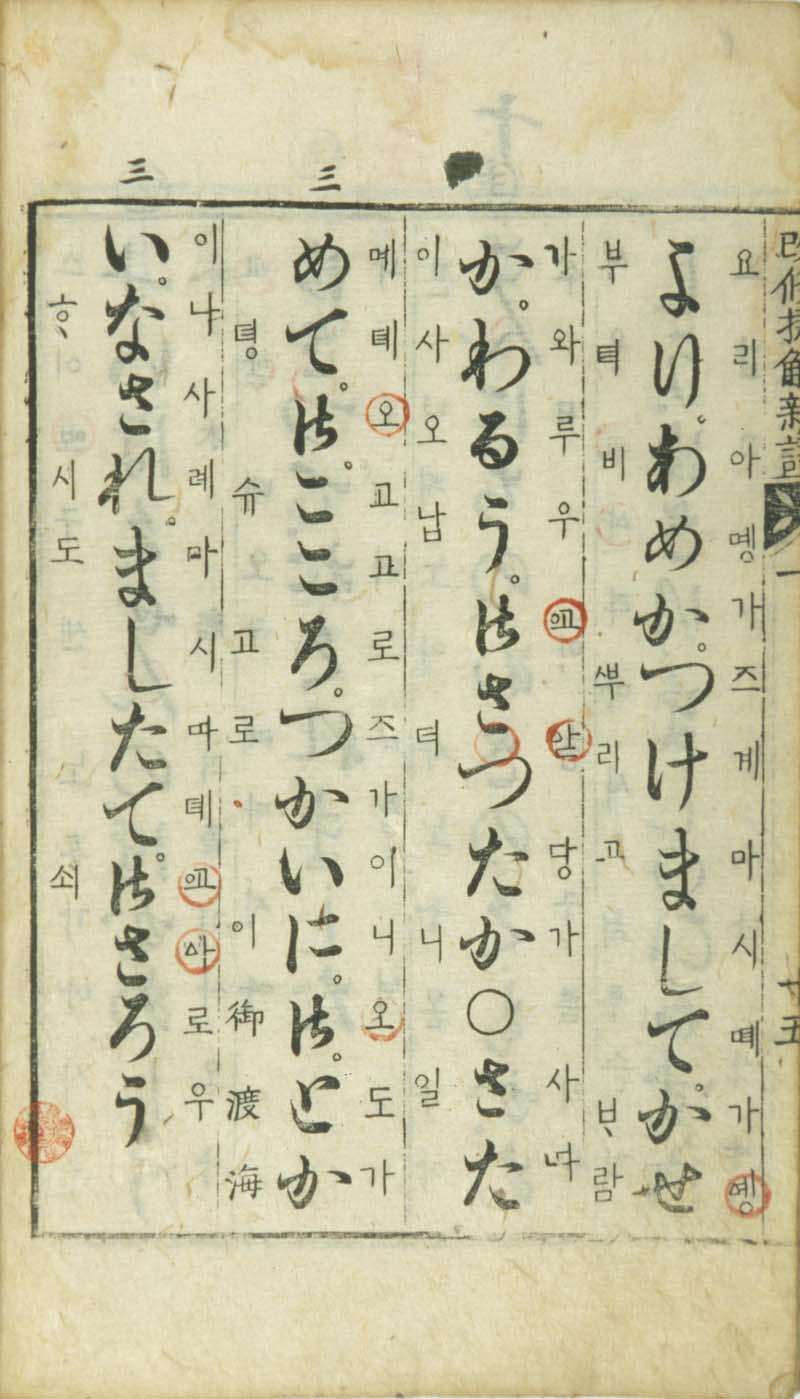 改修捷解新語 一 十五
요리아몡가즈게마시뗴가솅
よりあめかつけましてかせ
부텨비ᄲᅮ리고ᄇᆞ람
가와루우당가사ᄯᅡ
かわるう御さつたか○さた
이사오납더니일
三
메톄오교고로즈가이니오도가
めて御こころつかいに御とか
뎡슈고로이御渡海
三
이나사례마시ᄯᅡ톄로우
いなされましたて御さろう
ᄒᆞ시도쇠